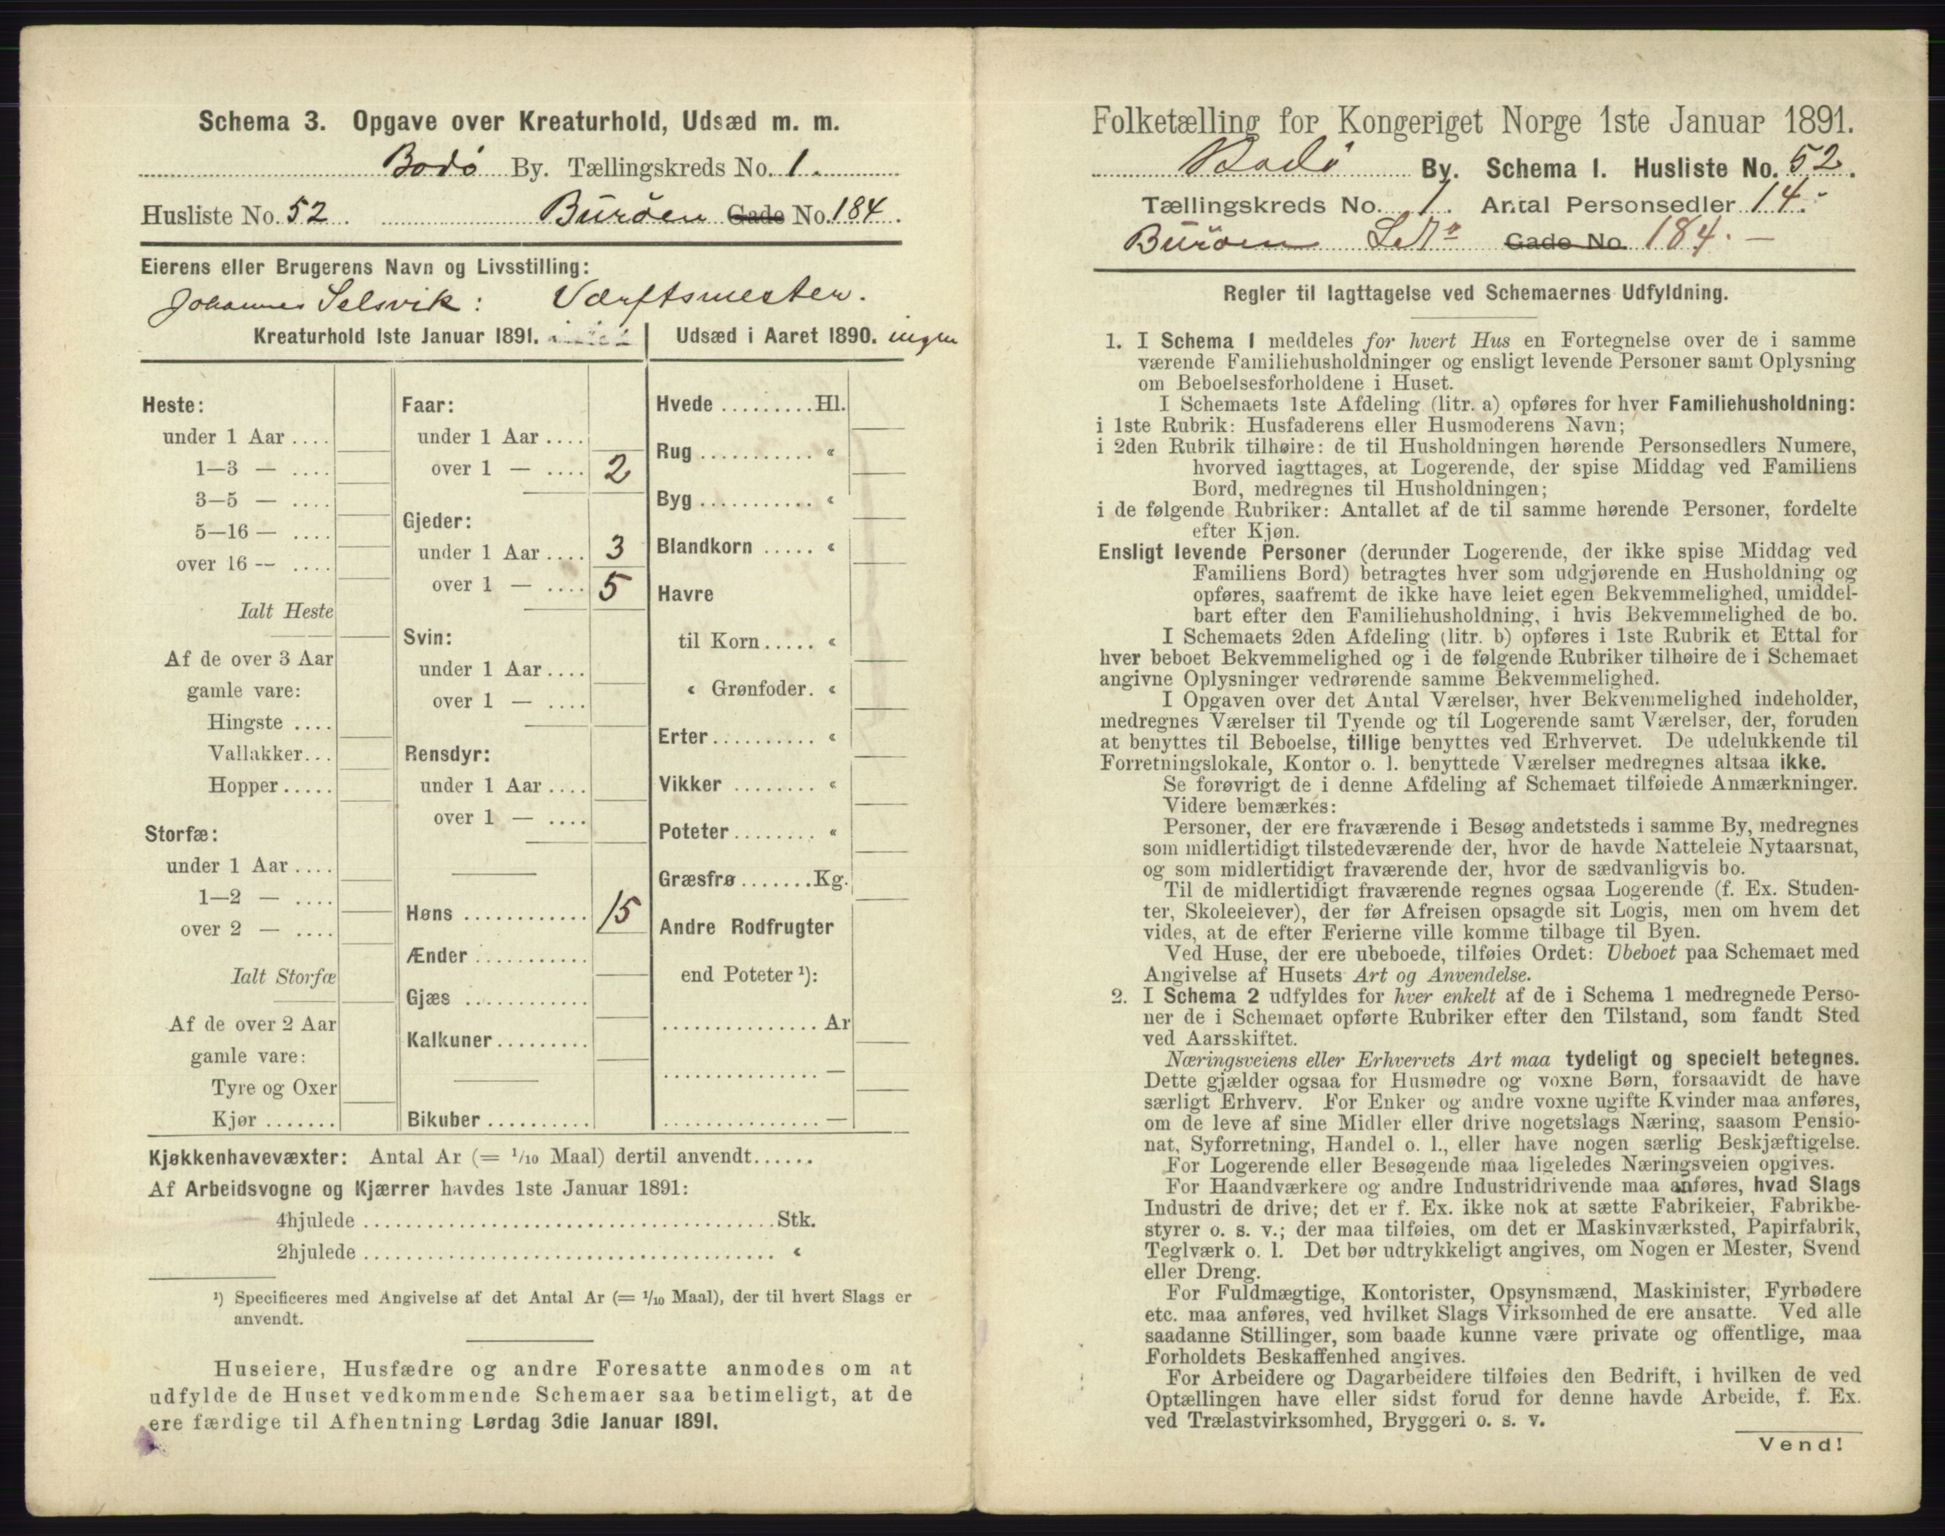 Schema 3. Opgave over Kreaturhold, Udsæd m. m.
Bodø By. Tællingskreds No. 1.
Husliste No. 52 Burøen Gade No. 184.
Eierens eller Brugerens Navn og Livsstilling:
Johannes Selsvik: Værftsmester.
Kreaturhold 1ste Januar 1891.
Heste:
under 1 Aar ....
1—3 — ....
3—5 — ....
5—16 — ....
over 16 — ....
Ialt Heste
Af de over 3 Aar
gamle vare:
Hingste ....
Vallakker...
Hopper.....
Storfæ:
under 1 Aar ....
1—2 — ....
over 2 — ....
Ialt Storfæ
Af de over 2 Aar
gamle vare:
Tyre og Oxer
Kjør .......
Faar:
under 1 Aar ....
over 1 — .... 2
Gjeder:
under 1 Aar .... 3
over 1 — .... 5
Svin:
under 1 Aar ....
over 1 — ....
Rensdyr:
under 1 Aar ....
over 1 — ....
Høns ............ 15
Ænder ...........
Gjæs ............
Kalkuner.........
Bikuber ..........
Udsæd i Aaret 1890. ingen
Hvede .........Hl.
Rug ........... «
Byg ........... «
Blandkorn ..... «
Havre
til Korn..... «
« Grønfoder. «
Erter.......... «
Vikker ........ «
Poteter........ «
Græsfrø .......Kg.
Andre Rodfrugter
end Poteter ¹):
............... Ar
............... —
............... —
Kjøkkenhavevæxter: Antal Ar (= 1/10 Maal) dertil anvendt......
Af Arbeidsvogne og Kjærrer havdes 1ste Januar 1891:
4hjulede ........................................Stk.
2hjulede ........................................ «
¹) Specificeres med Angivelse af det Antal Ar (= 1/10 Maal), der til hvert Slags er
anvendt.
Huseiere, Husfædre og andre Foresatte anmodes om at
udfylde de Huset vedkommende Schemaer saa betimeligt, at de
ere færdige til Afhentning Lørdag 3die Januar 1891.
Folketælling for Kongeriget Norge 1ste Januar 1891.
Bodø By. Schema 1. Husliste No. 52.
Tællingskreds No. 1. Antal Personsedler 14.
Burøen Gade No. 184. —
Regler til Iagttagelse ved Schemaernes Udfyldning.
1. I Schema 1 meddeles for hvert Hus en Fortegnelse over de i samme
værende Familiehusholdninger og ensligt levende Personer samt Oplysning
om Beboelsesforholdene i Huset.
I Schemaets 1ste Afdeling (litr. a) opføres for hver Familiehusholdning:
i 1ste Rubrik: Husfaderens eller Husmoderens Navn;
i 2den Rubrik tilhøire: de til Husholdningen hørende Personsedlers Numere,
hvorved iagttages, at Logerende, der spise Middag ved Familiens
Bord, medregnes til Husholdningen;
i de følgende Rubriker: Antallet af de til samme hørende Personer, fordelte
efter Kjøn.
Ensligt levende Personer (derunder Logerende, der ikke spise Middag ved
Familiens Bord) betragtes hver som udgjørende en Husholdning og
opføres, saafremt de ikke have leiet egen Bekvemmelighed, umiddel-
bart efter den Familiehusholdning, i hvis Bekvemmelighed de bo.
I Schemaets 2den Afdeling (litr. b) opføres i 1ste Rubrik et Ettal for
hver beboet Bekvemmelighed og i de følgende Rubriker tilhøire de i Schemaet
angivne Oplysninger vedrørende samme Bekvemmelighed.
I Opgaven over det Antal Værelser, hver Bekvemmelighed indeholder,
medregnes Værelser til Tyende og til Logerende samt Værelser, der, foruden
at benyttes til Beboelse, tillige benyttes ved Erhvervet. De udelukkende til
Forretningslokale, Kontor o. l. benyttede Værelser medregnes altsaa ikke.
Se forøvrigt de i denne Afdeling af Schemaet tilføiede Anmærkninger.
Videre bemærkes:
Personer, der ere fraværende i Besøg andetsteds i samme By, medregnes
som midlertidigt tilstedeværende der, hvor de havde Natteleie Nytaarsnat,
og som midlertidigt fraværende der, hvor de sædvanligvis bo.
Til de midlertidigt fraværende regnes ogsaa Logerende (f. Ex. Studen-
ter, Skoleelever), der før Afreisen opsagde sit Logis, men om hvem det
vides, at de efter Ferierne ville komme tilbage til Byen.
Ved Huse, der ere ubeboede, tilføies Ordet: Ubeboet paa Schemaet med
Angivelse af Husets Art og Anvendelse.
2. I Schema 2 udfyldes for hver enkelt af de i Schema 1 medregnede Perso-
ner de i Schemaet opførte Rubriker efter den Tilstand, som fandt Sted
ved Aarsskiftet.
Næringsveiens eller Erhvervets Art maa tydeligt og specielt betegnes.
Dette gjælder ogsaa for Husmødre og voxne Børn, forsaavidt de have
særligt Erhverv. For Enker og andre voxne ugifte Kvinder maa anføres,
om de leve af sine Midler eller drive nogetslags Næring, saasom Pensio-
nat, Syforretning, Handel o. l., eller have nogen særlig Beskjæftigelse.
For Logerende eller Besøgende maa ligeledes Næringsveien opgives.
For Haandværkere og andre Industridrivende maa anføres, hvad Slags
Industri de drive; det er f. Ex. ikke nok at sætte Fabrikeier, Fabrikbe-
styrer o. s. v.; der maa tilføies, om det er Maskinværksted, Papirfabrik,
Teglværk o. l. Det bør udtrykkeligt angives, om Nogen er Mester, Svend
eller Dreng.
For Fuldmægtige, Kontorister, Opsynsmænd, Maskinister, Fyrbødere
etc. maa anføres, ved hvilket Slags Virksomhed de ere ansatte. Ved alle
saadanne Stillinger, som baade kunne være private og offentlige, maa
Forholdets Beskaffenhed angives.
For Arbeidere og Dagarbeidere tilføies den Bedrift, i hvilken de ved
Optællingen have eller sidst forud for denne havde Arbeide, f. Ex.
ved Trælastvirksomhed, Bryggeri o. s. v.
Vend!